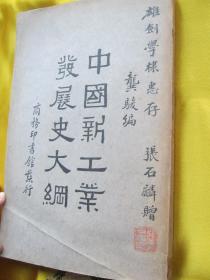 雄劍學棣惠存
張石麟贈
龔駿編
中國新工業
發展史大綱
商務印書館發行